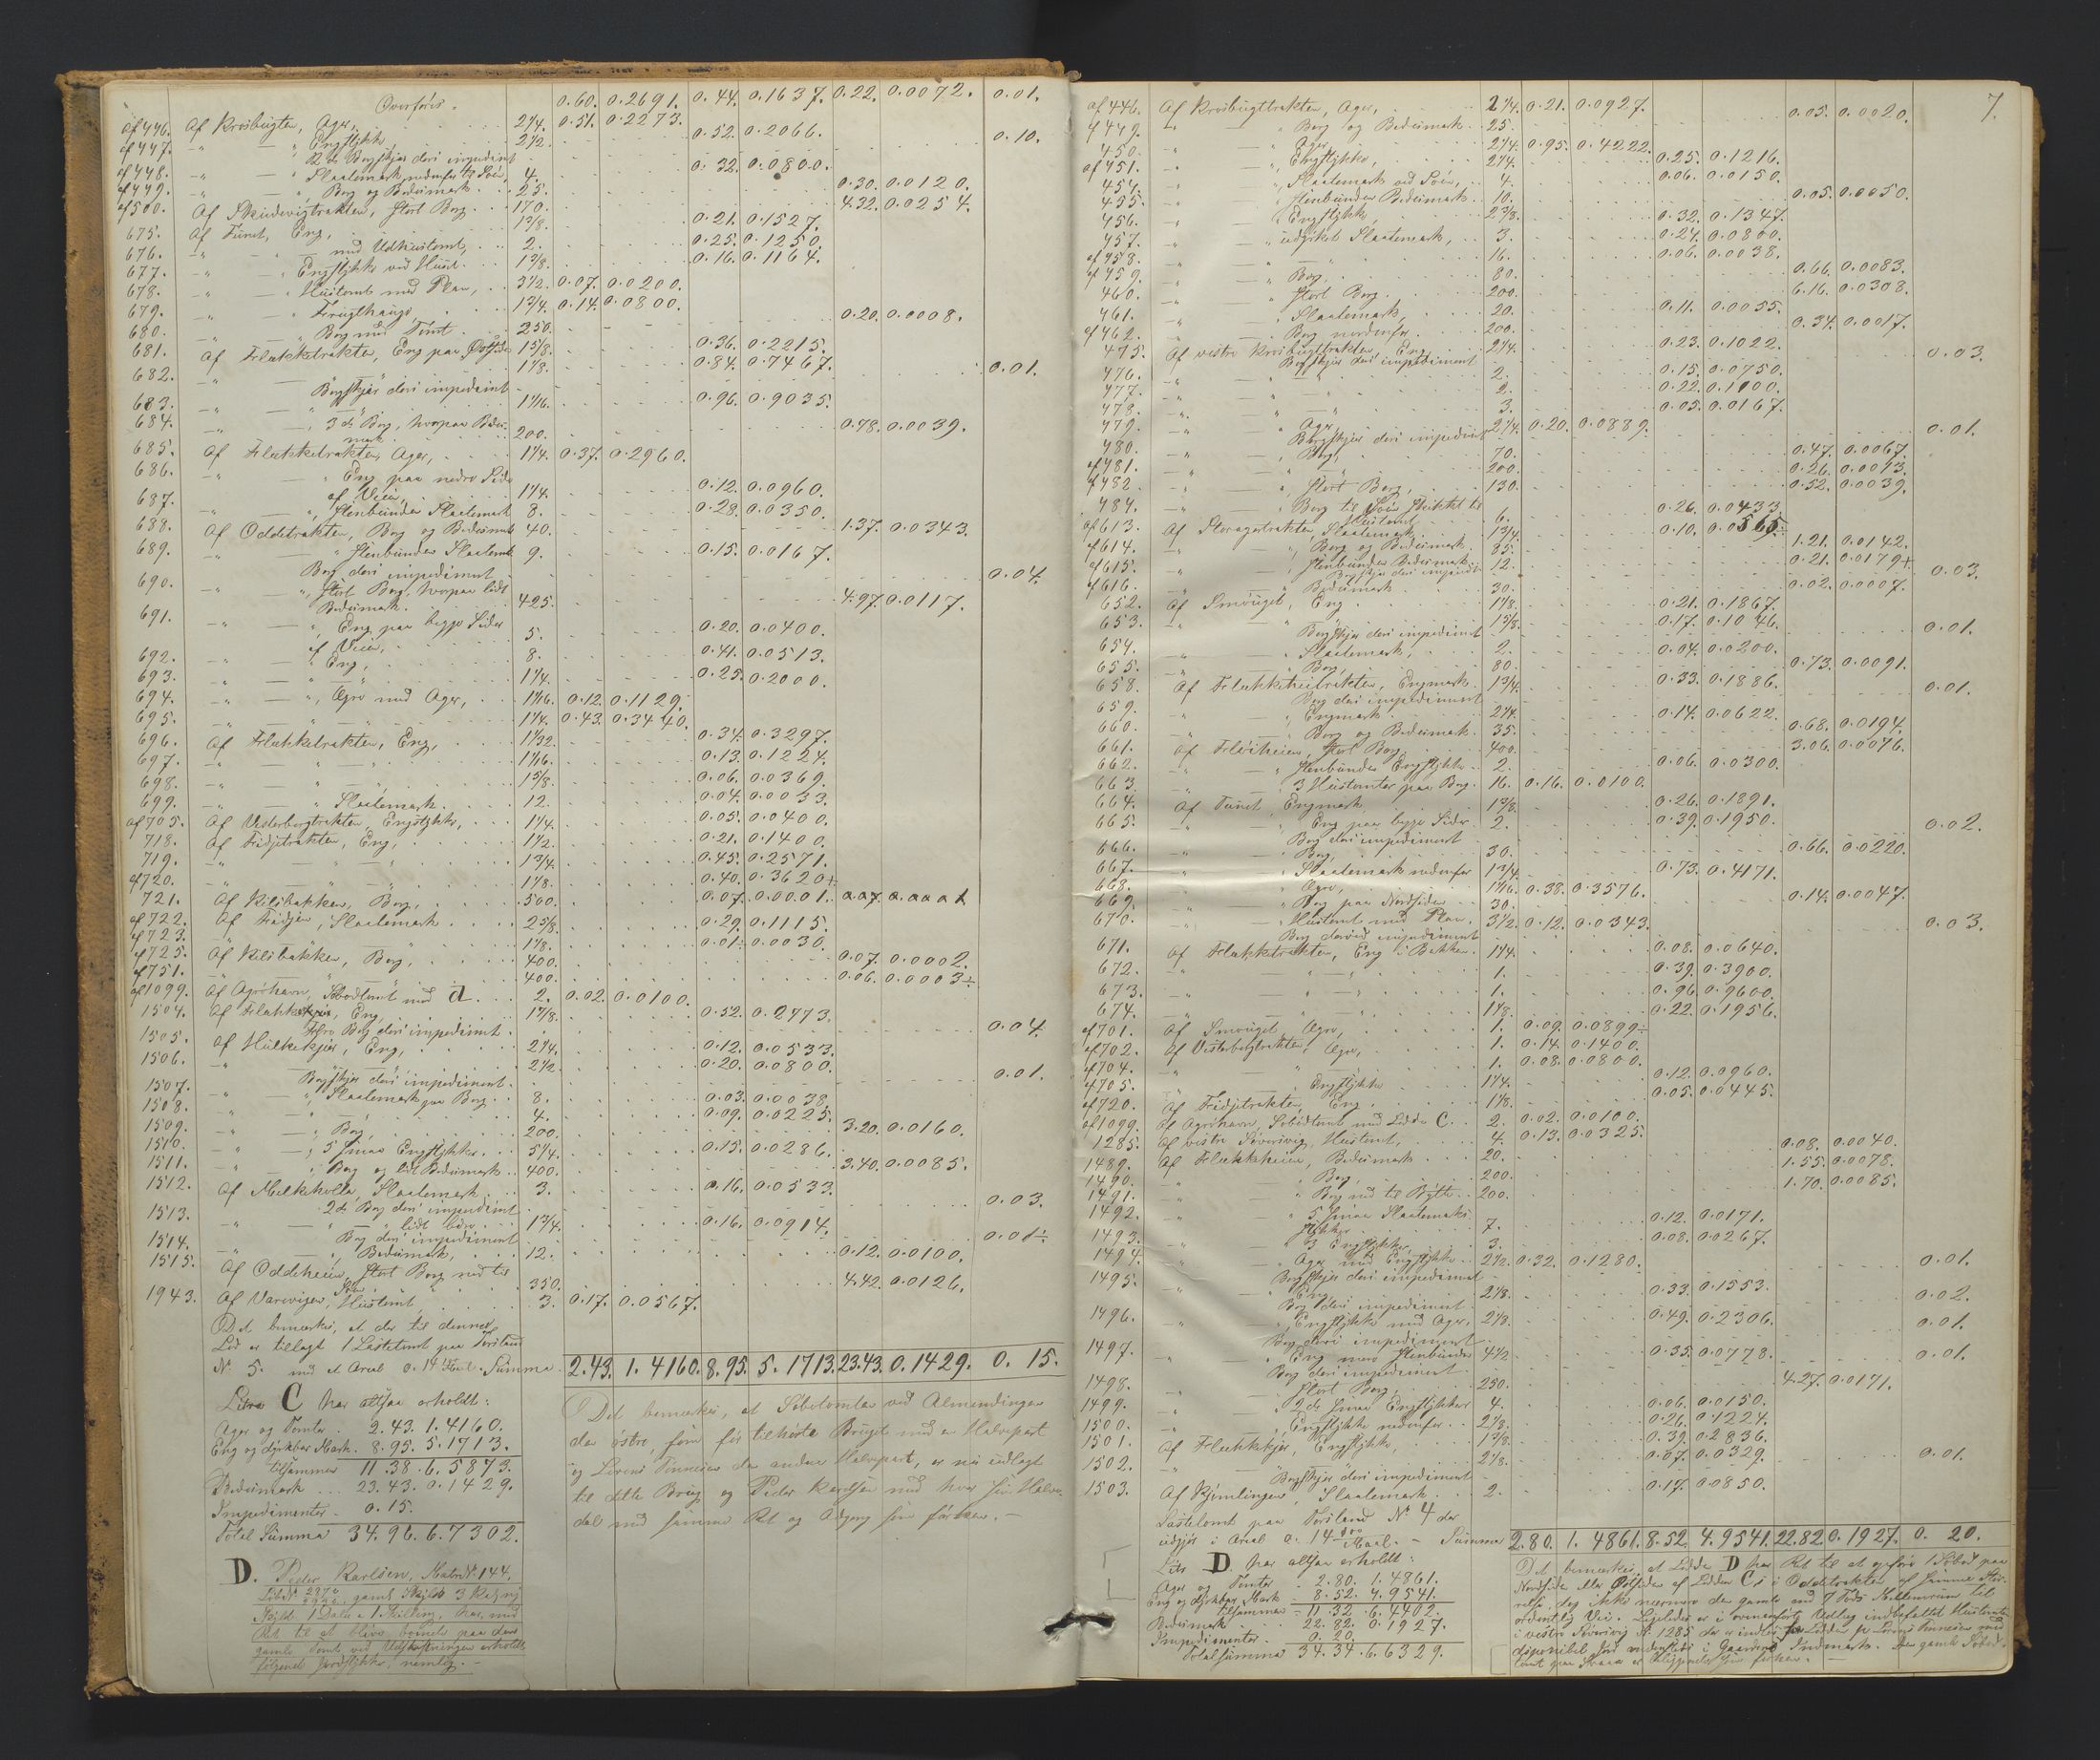 Overføres. 0.60. 0.2691. 0.44. 0.1637. 0.22. 0.0072. 0.01.
af 446. Af Krosbugten, Ager, 2 1/4. 0.51. 0.2273.
af 447. " — " Engstykke, 2 1/2. 0.52. 0.2066.
Bergskjær deri impediment 0.10.
af 448. " — " Slaatemark nedenfor til Søen, 4. 0.32. 0.0800.
af 449. " — " Berg og Bedesmark 25. 0.30. 0.0120.
af 500. Af Skudevigtrakten, stort Berg. 170. 4.32. 0.0254.
675. Af Tunet, Eng, 1 3/8. 0.21. 0.1527.
676. " — " med Udhustomt, 2. 0.25. 0.1250.
677. " — " Engstykke ved Huset. 1 3/8. 0.16. 0.1164.
678. " — " Hustomt med Plan, 3 1/2. 0.07. 0.0200.
679. " — " Frugthauge 1 3/4. 0.14. 0.0800.
680. " — " Berg med Tomt 250. 0.20. 0.0008.
681. Af Flekketrakten, Eng paa Østsiden 1 5/8. 0.36. 0.2215.
682. " — " 1 1/8. 0.84. 0.7467.
Bergskjær deri impediment 0.01.
683. " — " 1 1/16. 0.96. 0.9035.
684. " — " 3 de Berg, hvorpaa Bedes-
mark 200. 0.78. 0.0039.
685. Af Flekketrakten, Ager, 1 1/4. 0.37. 0.2960.
686. " — " Eng paa nedre Side
af Veien, 1 1/4. 0.12. 0.0960.
687. " — " Stenbunden Slaatemark 8. 0.28. 0.0350.
688. Af Oddetrakten, Berg og Bedesmark 40. 1.37. 0.0343.
689. " — " Stenbunden Slaatemk. 9. 0.15. 0.0167.
Berg deri impediment 0.04.
690. " — " stort Berg, hvorpaa lidt
Bedesmark. 425. 4.97. 0.0117.
691. " — " Eng paa begge Sider
af Veien, 5. 0.20. 0.0400.
692. " — " Eng, 8. 0.41. 0.0513.
693. " — " 1 1/4. 0.25. 0.2000.
694. " — " Agre med Ager, 1 1/16. 0.12. 0.1129.
695. " — " 1 1/4. 0.43. 0.3440.
696. Af Flekketrakten, Eng, 1 1/32. 0.34. 0.3297.
697. " — " 1 1/16. 0.13. 0.1224.
698. " — " 1 5/8. 0.06. 0.0369.
699. " — " Slaatemark. 12. 0.04. 0.0033.
af 705. Af Vesterbergtrakten, Engstykke, 1 1/4. 0.05. 0.0400.
718. Af Tridjetrakten, Eng, 1 1/2. 0.21. 0.1400.
719. " — " 1 3/4. 0.45. 0.2571.
af 720. " — " 1 1/8. 0.40. 0.3620+
721. Af Kilsbakken, Berg, 500. 0.07. 0.0001.
af 722. Af Tridjen, Slaatemark 2 5/8. 0.29. 0.1115.
af 723. 1 1/8. 0.01. 0.0030.
af 725. Af Kilsbakken, Berg, 400. 0.07. 0.0002.
af 751. 400. 0.06. 0.0003÷
af 1099. Af Agrehavn, Søbodtomt med d. 2. 0.02. 0.0100.
1504. Af Flekkekjær, Eng, 1 7/8. 0.52. 0.2773.
Berg deri impediment 0.04.
1505. Af Hulkekjær, Eng, 2 1/4. 0.12. 0.0533.
1506. " — " 2 1/2. 0.20. 0.0800.
Bergskjær deri impediment 0.01.
1507. " — " Slaatemark paa Berg 8. 0.03. 0.0038.
1508. " — " 4. 0.09. 0.0225.
1509. " — " Berg, 200. 3.20. 0.0160.
1510. " — " 5 smaa Engstykker 5 1/4. 0.15. 0.0286.
1511. " — " Berg og lidt Bedesmark 400. 3.40. 0.0085.
1512. Af Melkeholla, Slaatemark 3. 0.16. 0.0533.
2 de Berg deri impediment 0.03.
1513. " — " lidt bedre 1 3/4. 0.16. 0.0914.
Berg deri impediment 0.01÷
1514. " — " Bedesmark, 12. 0.12. 0.0100.
1515. Af Oddeheien, stort Berg ned til
Søen 350. 4.42. 0.0126.
1943. Af Varevigen, Hustomt, 3. 0.17. 0.0567.
Det bemærkes, at der til denne
Lod er tillagt 1 Lastetomt paa Torsland
No 5. med et Areal 0.14 Summa 2.43. 1.4160. 8.95. 5.1713. 23.43. 0.1429. 0.15.
Litra C har altsaa erholdt:
Ager og Tomter 2.43. 1.4160.
Eng og dyrkbar Mark. 8.95. 5.1713.
tilsammen 11.38. 6.5873.
Bedesmark 23.43. 0.1429.
Impedimenter 0.15.
Total Summa 34.96. 6.7302.
D. Peder Karlsen, Matr.No 144.
gamle Tomt, ved Udskiftningen erholdt
følgende Jordstykker, nemlig.
Det bemærkes, at Søbotomten ved Almendingen
den østre, som før tilhørte Bruget med en Halvpart
og Sørens Tønnesen den anden Halvpart, er nu udlagt
til dette Brug og Peder Karlsen med hver sin Halv-
del med samme Ret og Adgang som førhen.
7.
af 446. Af Krosbugttrakten, Ager, 2 1/4. 0.21. 0.0927.
af 449. " — " Berg og Bedesmark 25. 0.05. 0.0020.
450. " — " Ager 2 1/4. 0.95. 0.4222.
af 451. " — " Engstykke, 2 1/4. 0.25. 0.1216.
454. " — " Slaatemark ved Søen, 4. 0.06. 0.0150.
455. " — " Stenbunden Bedesmark 10. 0.05. 0.0050.
456. " — " Engstykke 2 3/8. 0.32. 0.1347.
457. " — " udyrket Slaatemark, 3. 0.24. 0.0800.
af 458. " — " 16. 0.06. 0.0038.
af 459. " — " Berg, 80. 0.66. 0.0083.
460. " — " stort Berg 200. 6.16. 0.0308.
461. " — " Slaatemark, 20. 0.11. 0.0055.
af 462. " — " Berg nordenfor 200. 0.34. 0.0017.
475. Af vestre Krosbugttrakten, Eng 2 1/4. 0.23. 0.1022.
Bergskjær deri impediment 0.03.
476. " — " 2. 0.15. 0.0750.
477. " — " 2. 0.22. 0.1100.
478. " — " 3. 0.05. 0.0167.
479. " — " Ager 2 1/4. 0.20. 0.0889.
Bergskjær deri impediment 0.01.
480. " — " Berg, 70. 0.47. 0.0067.
af 481. " — " 200. 0.26. 0.0013.
af 482. " — " stort Berg, 130. 0.52. 0.0039.
484. " — " Berg til Søen
Hustomt 6. 0.26. 0.0433.
af 613. Af Storagetrakten, Slaatemark 1 3/4. 0.10. 0.0565÷
af 614. " — " Berg og Bedesmark 85. 1.21. 0.0142.
af 615. " — " Stenbunden Bedesmark 12. 0.21. 0.0179+
Bergskjær deri impedt. 0.03.
af 616. " — " Bedesmark 30. 0.02. 0.0007.
652. Af Smøuget, Eng 1 1/8. 0.21. 0.1867.
653. " — " 1 5/8. 0.17. 0.1046.
Bergskjær deri impediment 0.01.
654. " — " Slaatemark, 2. 0.04. 0.0200.
655. " — " Berg, 80. 0.73. 0.0091.
658. Af Flekkeheitrakten, Engmark 1 3/4. 0.33. 0.1886.
Berg deri impediment 0.01.
659. " — " Engmark 2 1/4. 0.14. 0.0622.
660. " — " Berg og Bedesmark 35. 0.68. 0.0194.
661. Af Fløiheien, stort Berg 400. 3.06. 0.0076.
662. " — " Stenbunden Engstykke 2. 0.06. 0.0300.
663. " — " 3 Hustomter paa Berg 16. 0.16. 0.0100.
664. Af Tunet, Engmark 1 3/8. 0.26. 0.1891.
665. " — " Eng paa begge Sider 2. 0.39. 0.1950.
Berg deri impediment 0.02.
666. " — " Berg, 30. 0.66. 0.0220.
667. " — " Slaatemark nedenfor 1 3/4. 0.73. 0.4171.
668. " — " Agre, 1 1/16. 0.38. 0.3576.
669. " — " Berg paa Nordsiden 30. 0.14. 0.0047.
670. " — " Hustomt med Plan 3 1/2. 0.12. 0.0343.
Berg derved impediment 0.03.
671. Af Flekketrakten, Eng i Bakken 1 1/4. 0.08. 0.0640.
672. " — " 1. 0.39. 0.3900.
673. " — " 1. 0.96. 0.9600.
674. " — " 1 1/8. 0.22. 0.1956.
af 701. Af Smøuget, Agre, 1. 0.09. 0.0899÷
af 702. Af Vesterbergtrakten, Agre, 1. 0.14. 0.1400.
af 704. " — " 1. 0.08. 0.0800.
af 705. " — " Engstykke 1 1/4. 0.12. 0.0960.
af 720. Af Tridjetrakten, Eng 1 1/8. 0.05. 0.0445.
af 1099. Af Agrehavn, Søbodtomt med Lodden C. 2. 0.02. 0.0100.
1285. Af vestre Siverivig, Hustomt, 4. 0.13. 0.0325.
1489. Af Flekkeheien, Bedesmark 20. 0.08. 0.0040.
1490. " — " Berg, 200. 1.55. 0.0078.
1491. " — " Berg ned til Bytte 200. 1.70. 0.0085.
1492. " — " 5 smaa Slaatemarks
stykker 7. 0.12. 0.0171.
1493. " — " 3 Engstykker, 3. 0.08. 0.0267.
1494. " — " Ager med Engstykke 2 1/2. 0.32. 0.1280.
Bergskjær deri impediment 0.01.
1495. " — " Eng, 2 1/8. 0.33. 0.1553.
Berg deri impediment 0.02.
1496. " — " Engstykke med Ager, 2 1/8. 0.49. 0.2306.
Berg deri impediment 0.01.
1497. " — " Eng men stenbunden 4 1/2. 0.35. 0.0778.
Berg deri impediment 0.01.
1498. " — " stort Berg, 250. 4.27. 0.0171.
1499. " — " 2 de smaa Engstykker 4. 0.06. 0.0150.
1500. " — " Engstykke nedenfor 2 1/8. 0.26. 0.1224.
1501. Af Flekkekjær, Engstykke, 1 3/8. 0.39. 0.2836.
1502. " — " 2 1/8. 0.07. 0.0329.
Bergskjær deri impediment 0.01.
1503. Af Kjemlingen, Slaatemark 2. 0.17. 0.0850.
Lastetomt paa Torsland No 4 der
udgjør i Areal 0.14 Maal. Summa 2.80. 1.4861. 8.52. 4.9541. 22.82. 0.1927. 0.20.
Litr. D. har altsaa erholdt:
Ager og Tomter 2.80. 1.4861.
Eng og dyrkbar Mark 8.52. 4.9541.
tilsammen 11.32. 6.4402.
Bedesmark 22.82. 0.1927.
Impedimenter. 0.20.
Totalsumma 34.34. 6.6329.
Det bemærkes, at Lodden D har Ret til at opføre 1 Søbod paa
Nordsiden eller Østsiden af Lodden C i Oddetrakten af samme Stør-
relse, dog ikke nærmere den gamle end 7 Fods Mellemrum til
ordentlig Vei. Ligeledes er i ovenanførte Udlæg indbefattet Hustomten
i vestre Siverivig No 1285